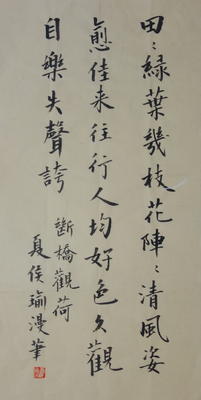 田〻綠葉幾枝花陣〻清風姿
愈佳来往行人均好色久觀
自樂失聲誇
斷橋觀荷
夏侯瑜漫筆